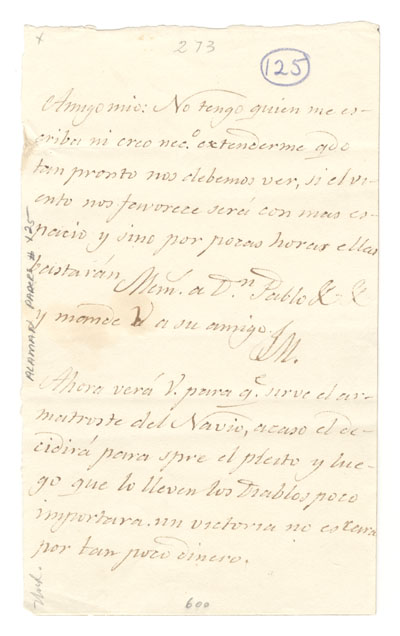 x
273
125
Amigo mio: No tengo quien me es-
criba ni creo nec.o extenderme qdo
tan pronto nos debemos ver, si el vi-
ento nos favorece será con mas es-
pacio y sino por pocas horas ellas
bastarán. Mem.s a Dn Pablo &. &
y mande V a su amigo.
M.
Ahora verá V. para q.e sirve el ar-
matroste del Navio, acaso el de-
cidirá para spre el pleito y lue-
go que lo lleven los Diablos poco
importara. un victoria no es cara
por tan poco dinero.
ALAMAN PAPERS # 125
600